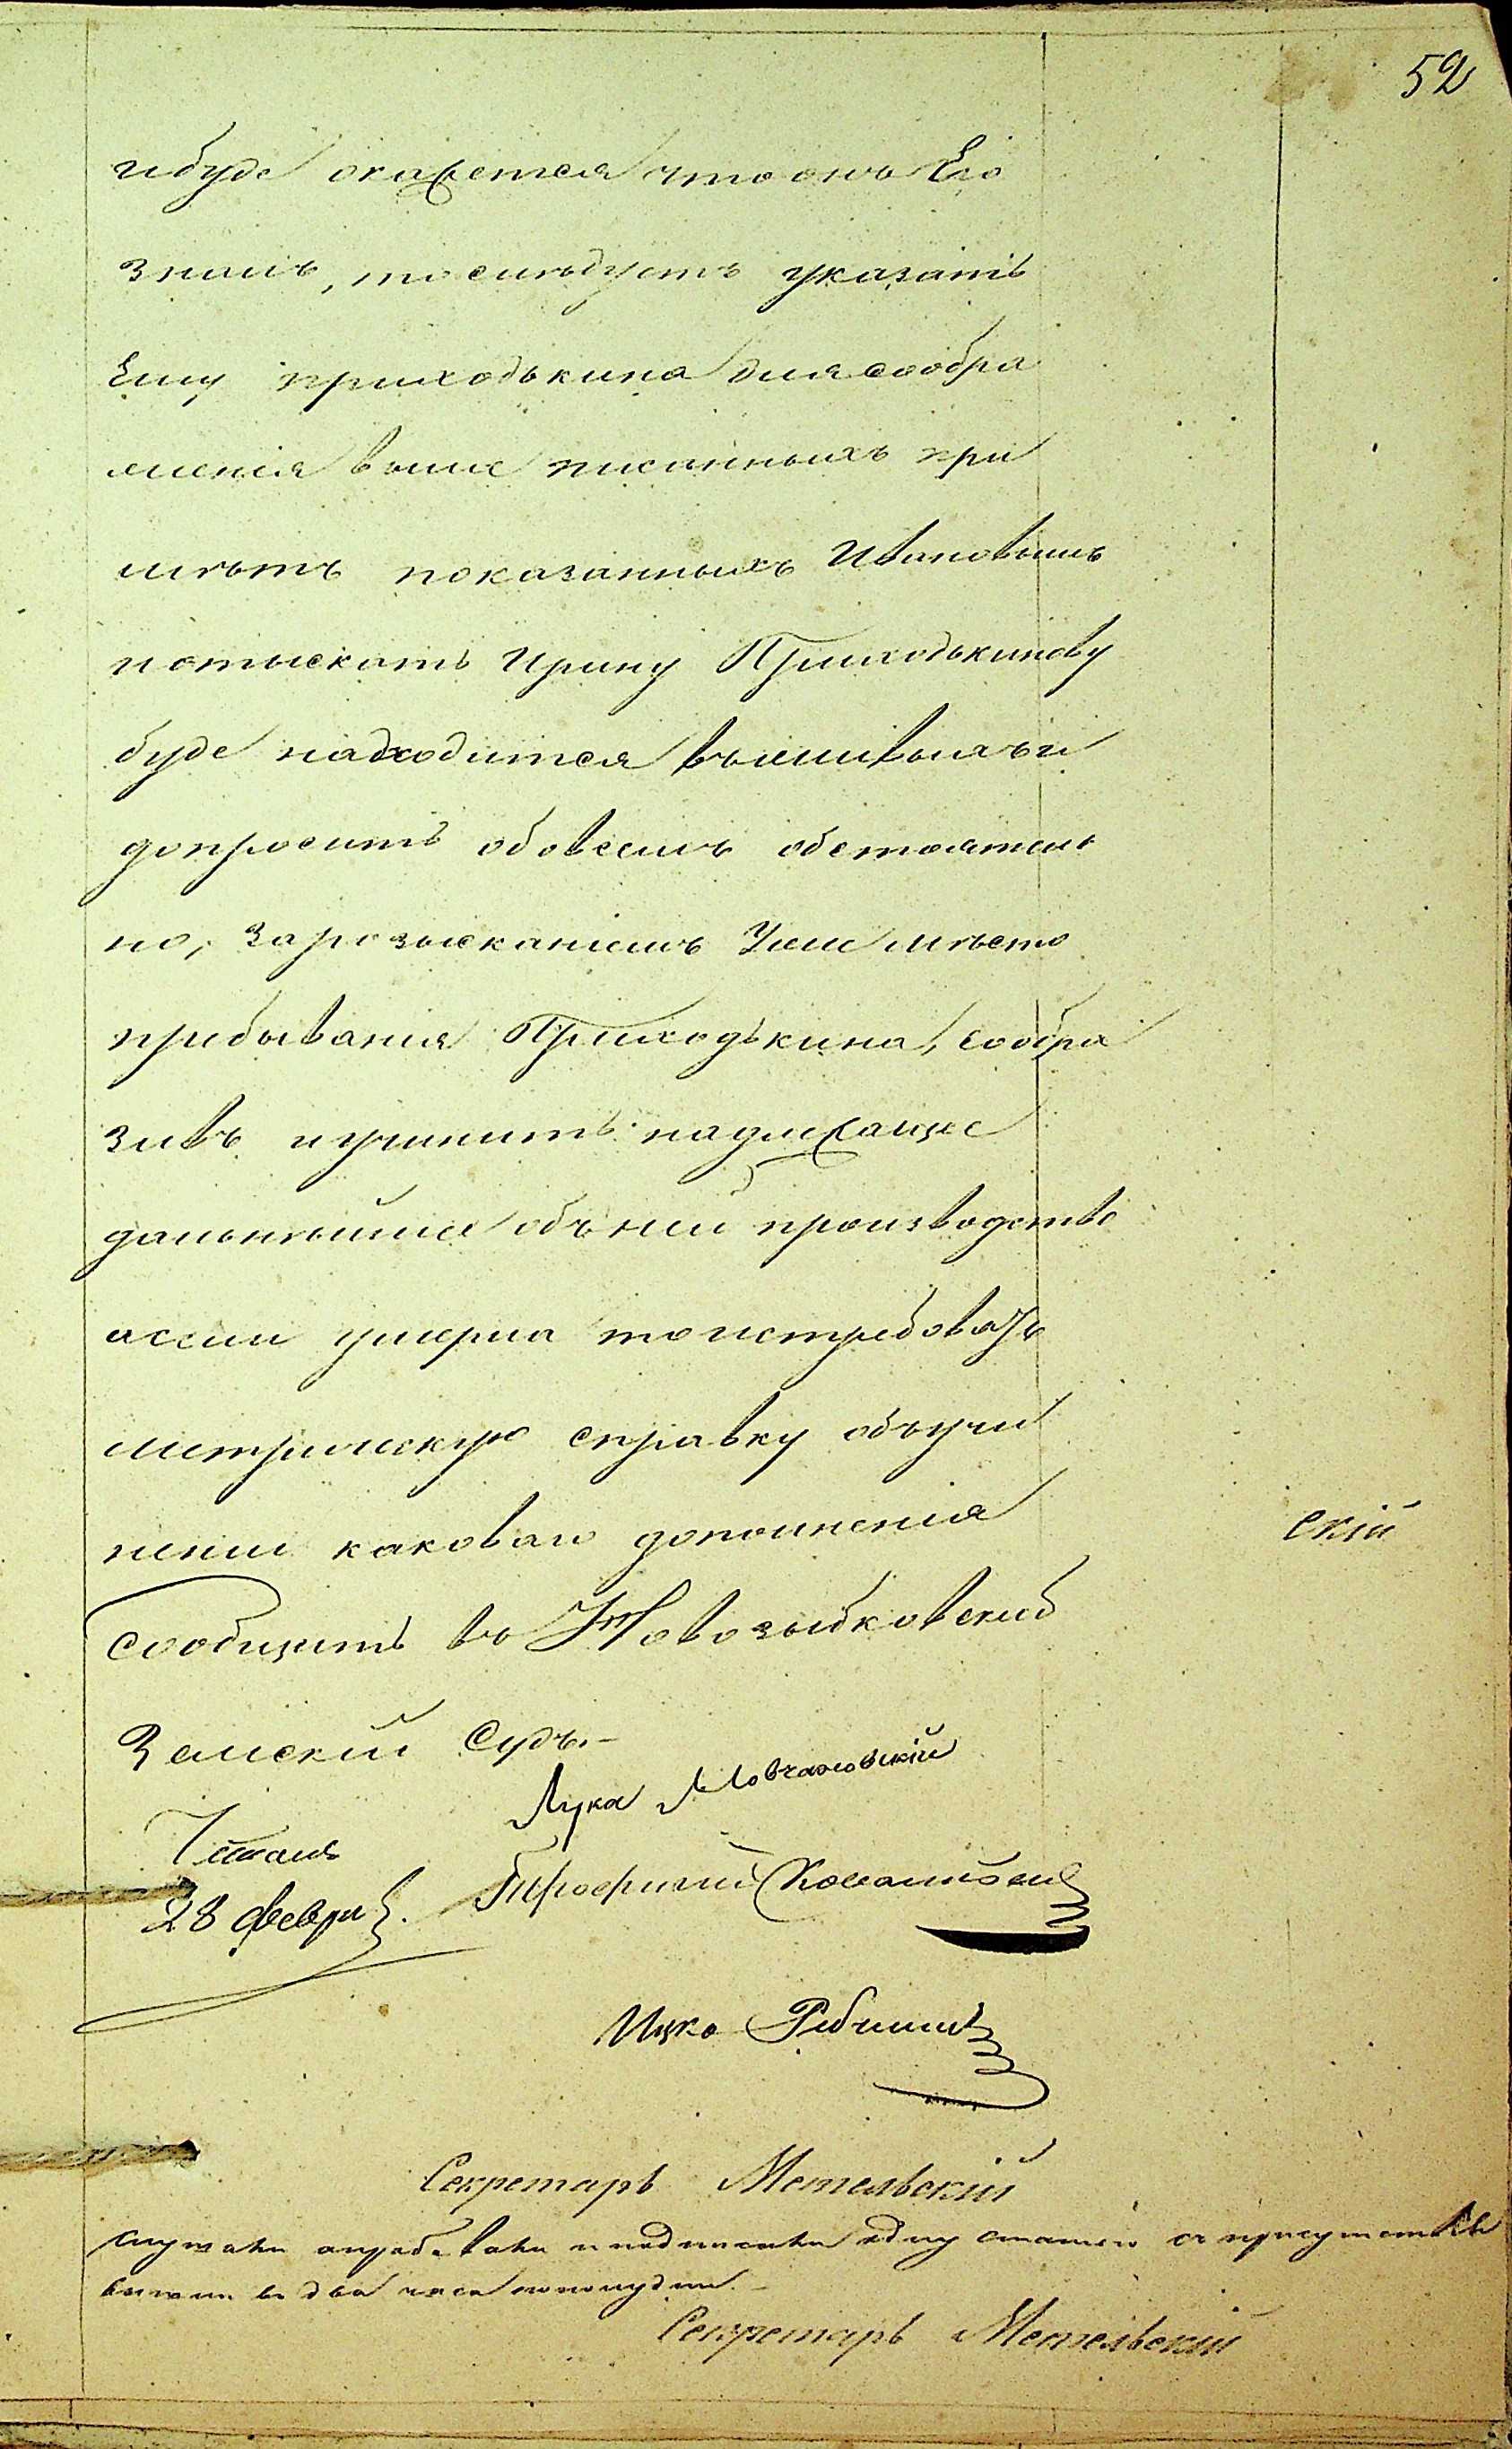 52
ибуде окажется что онъ Его
зналъ, то следуетъ указать
Ему приходькина для сообра
женія выше писанныхъ при
мѣтъ показанныхъ Ивановымъ
иотыскать Ирину Приходькинову
буде находится вживыхъ и
допросить обовсемъ обстоятель
но, зарозысканіемъ Уже мѣсто
пребыванія Приходькина, сообра
зивъ иучинить надлежаще
дальнѣйшее объ ней производство
аесли умерла то истребовать
метрическую справку объучи
неніи каковаго дополненія
скій
сообщить въ Новозыбковский
Земскій Судъ.-
Лука
Читалъ
28 февра.
Трофимъ
Ицко
Секретарь Метельскій
слушали апробовали и подписали одну статью съ присутствія
вышли въ два часа пополудни.-
Секретарь Метельскій